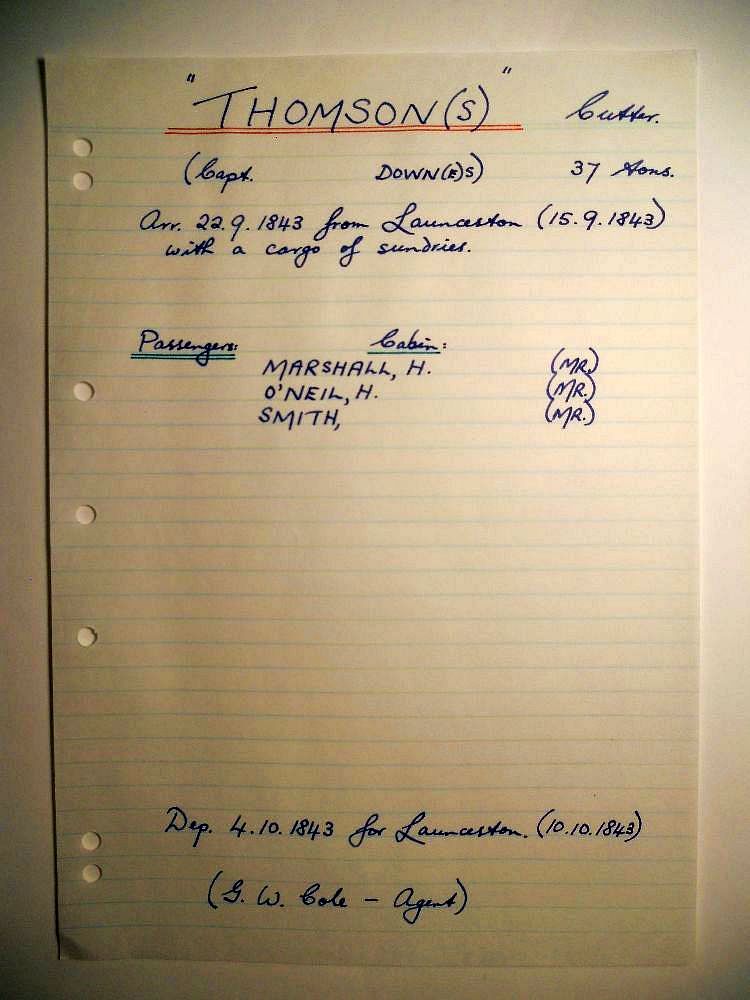 "THOMSON(S)" Cutter.
(Capt. DOWN(E)S) 37 tons.
Arr. 22.9.1843 from Launceston (15.9.1843)
with a cargo of sundries.
Passengers: Cabin:
MARSHALL, H. (MR.)
O'NEIL, H. (MR.)
SMITH, (MR.)
Dep. 4.10.1843 for Launceston. (10.10.1843)
(G. W. Cole - Agent)